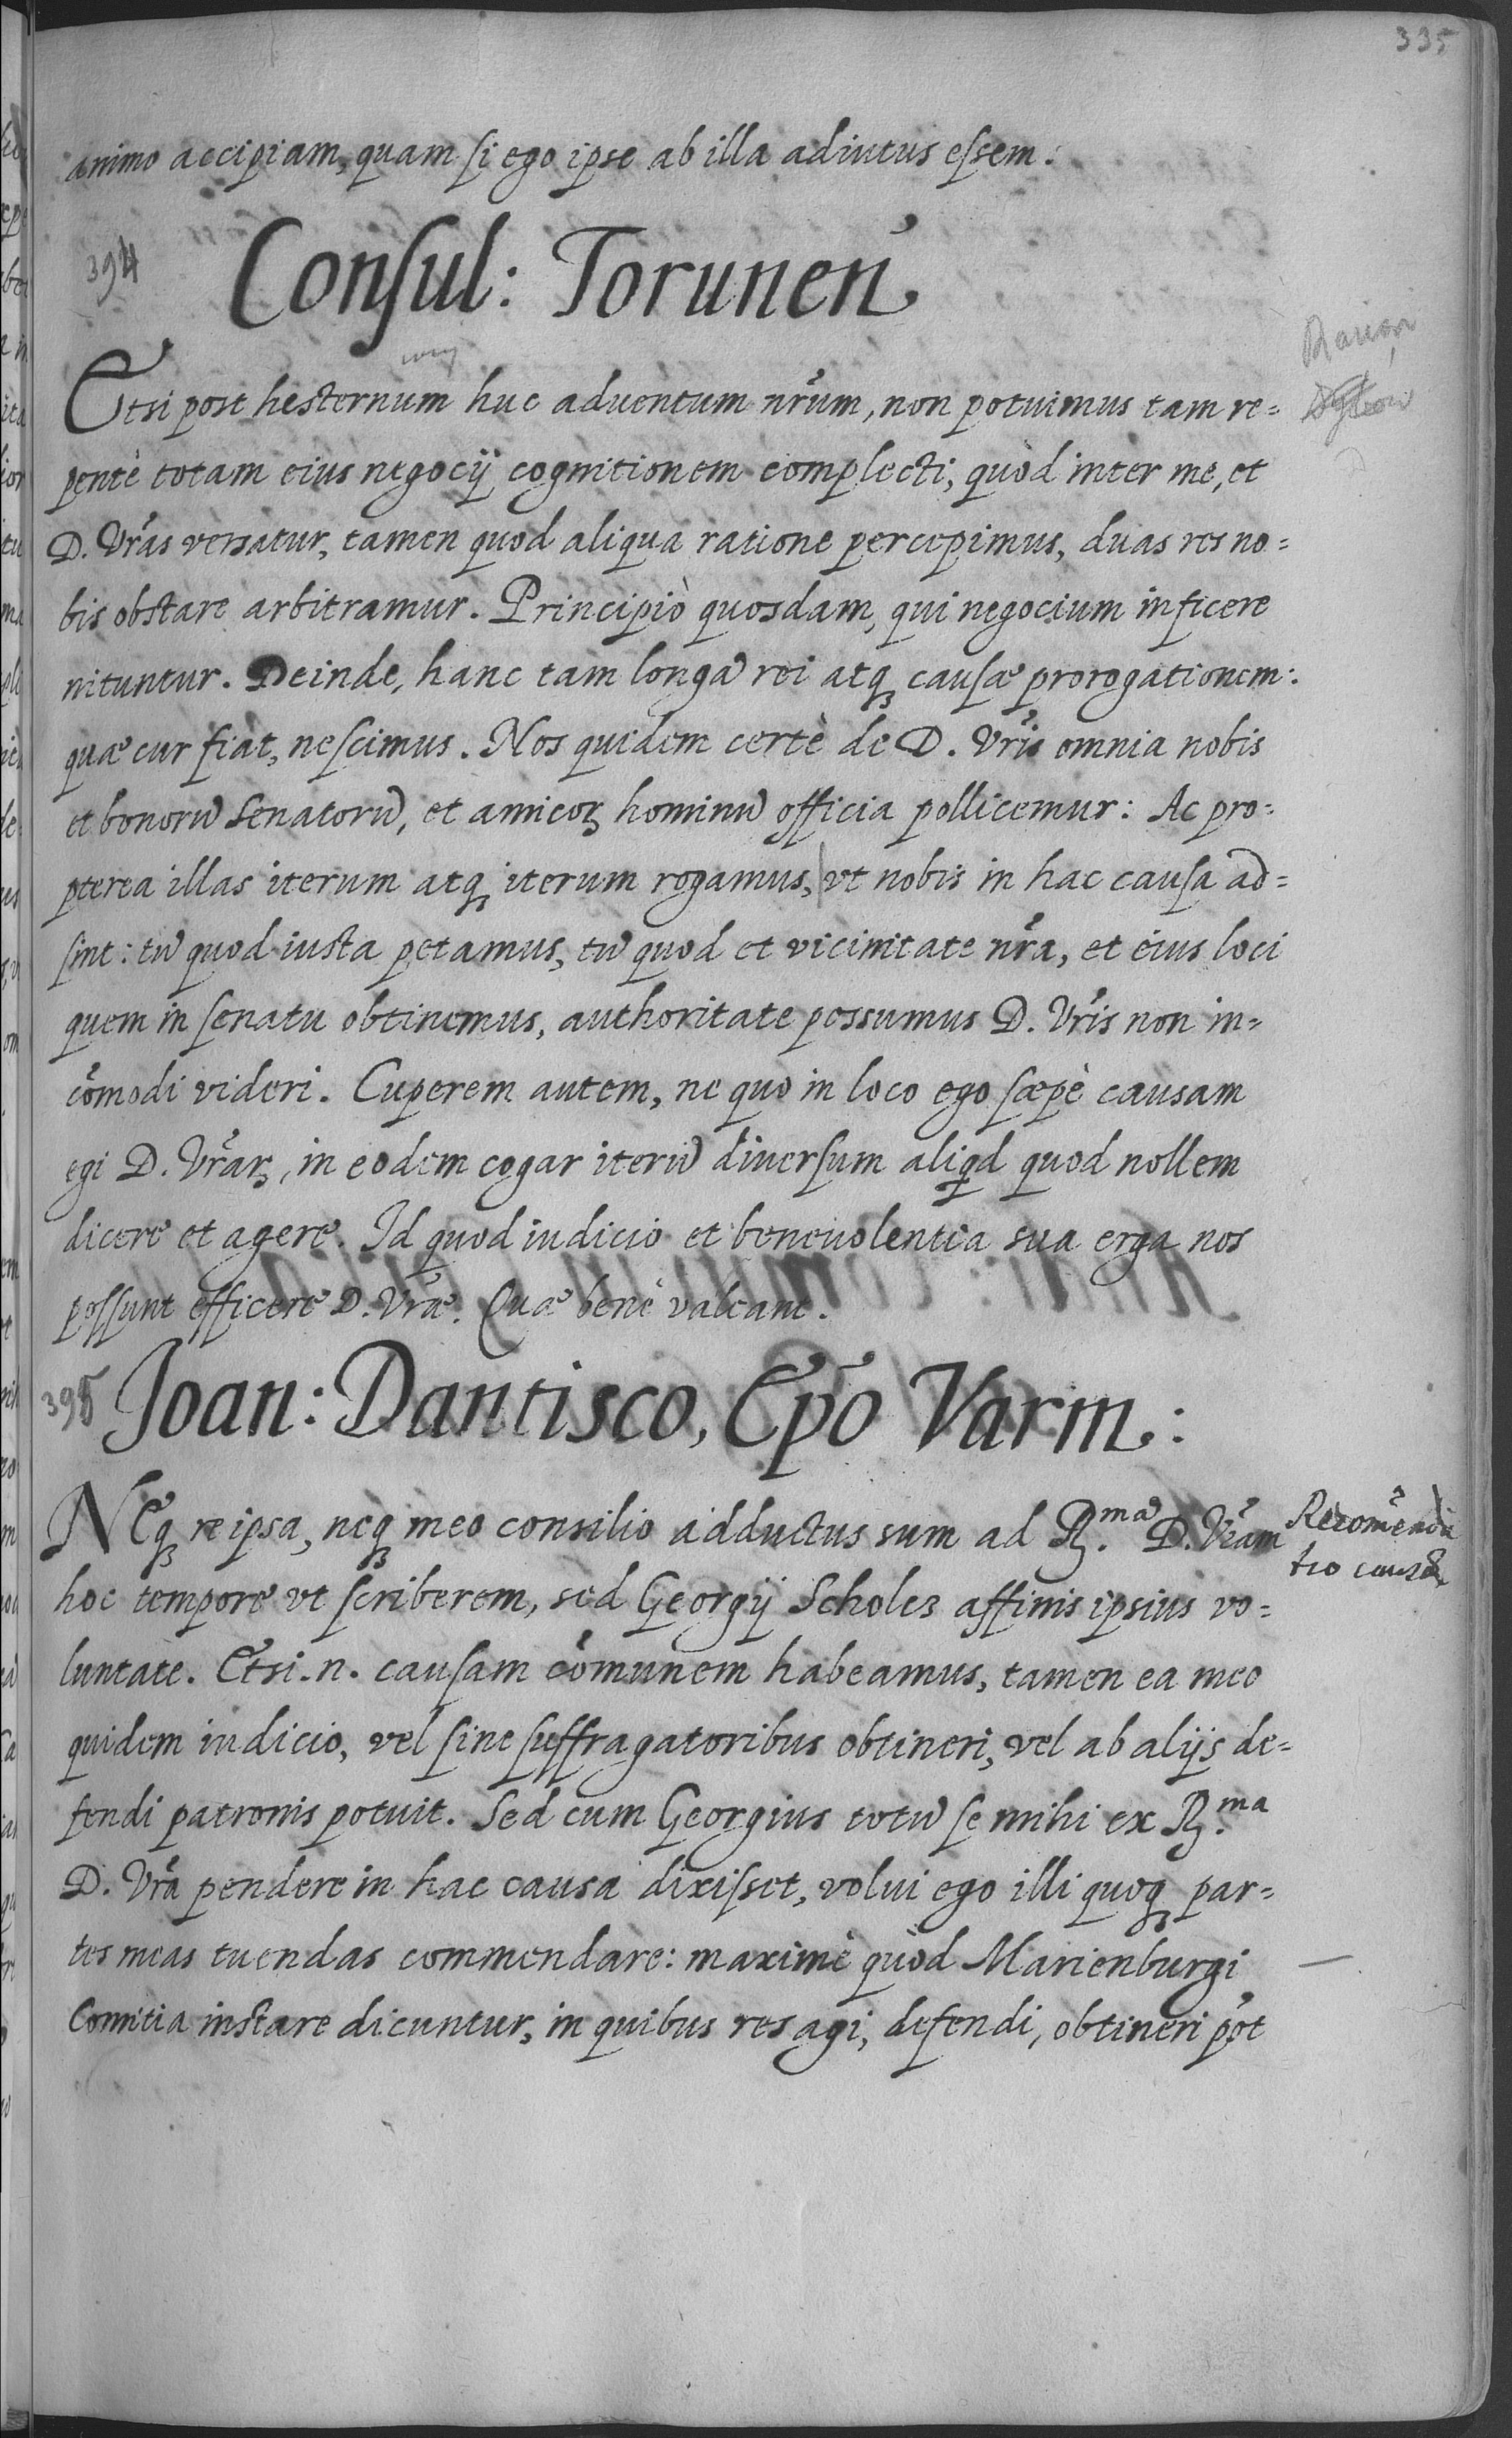 335
animo accipiam, quam si ego ipse ab illa adiutus essem.
394
Consul: Torunen̄
Etsi post hesternum huc aduentum nr̃um, non potuimus tam re=
pentè totam eius negocij cognitionem complecti, quòd inter me, et
D. Vr̃as versatur, tamen quod aliqua ratione percepimus, duas res no=
bis obstare arbitramur. Principiò quosdam, qui negocium inficere
nituntur. Deinde, hanc tam longã rei atq₃ causæ prorogationem:
quæ cur fiat, nescimus. Nos quidem certè de D. Vr̃is omnia nobis
et bonorũ Senatorũ, et amicoꝝ hominũ officia pollicemur: Ac pro=
pterea illas iterum atq₃ iterum rogamus, vt nobis in hac causa ad=
sint: tũ quod iusta petamus, tũ quod et vicinitate nr̃a, et eius loci
quem in senatu obtinemus, authoritate possumus D. Vr̃is non in=
cõmodi videri. Cuperem autem, ne quo in loco ego sæpè causam
egi D. Vr̃aꝝ, in eodem cogar iterũ diuersum aliqd quod nollem
dicere et agere. Id quod iudicio et beneuolentia sua erga nos
possunt efficere D. Vr̃æ. Quæ benè valeant.
395
Joan: Dantisco, Ep̃o Varm:
NEq₃ re ipsa, neq₃ meo consilio adductus sum ad R.mã D. Vr̃am
Recomẽnda
tio causæ
hoc tempore vt scriberem, sed Georgij Scholcz affinis ipsius vo=
luntate. Etsi .n. causam cõmunem habeamus, tamen ea meo
quidem iudicio, vel sine suffragatoribus obtineri, vel ab alijs de=
fendi patronis potuit. Sed cum Georgius totũ se mihi ex R.ma
D. Vr̃a pendere in hac causa dixisset, volui ego illi quoq₃ par=
tes meas tuendas commendare: maximè quòd Marienburgi
Comitia instare dicuntur, in quibus res agi, defendi, obtineri põt